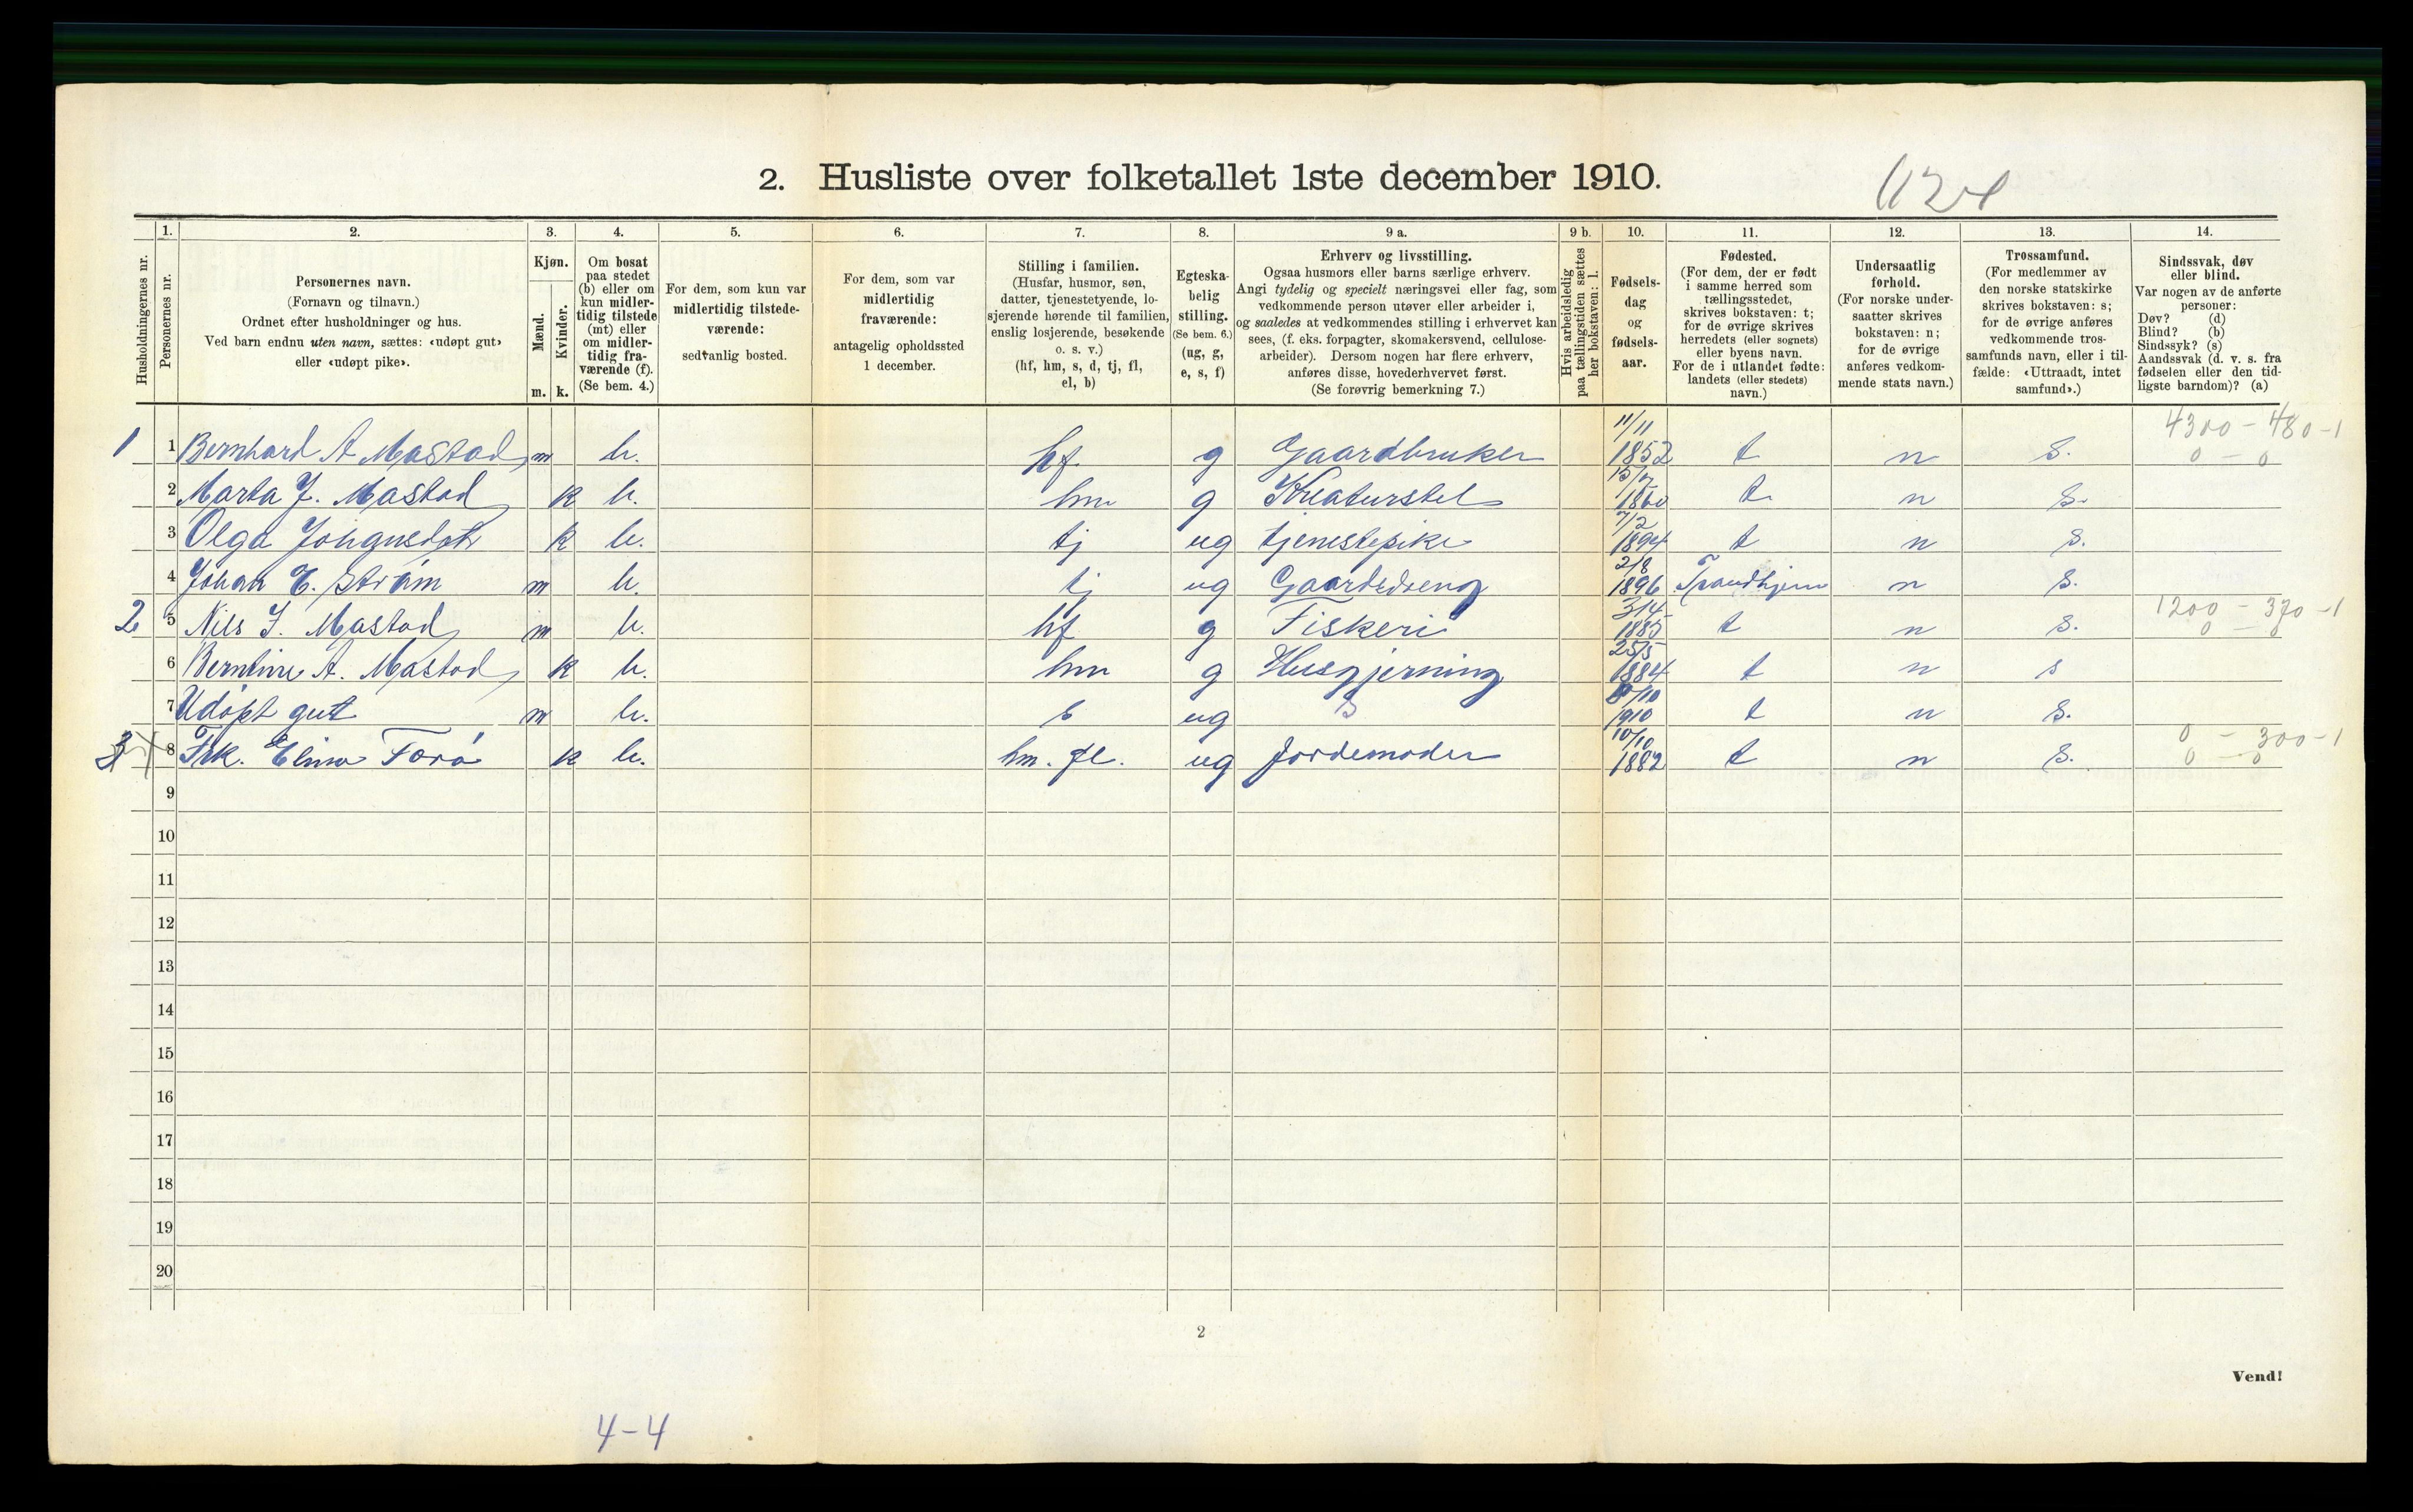 2. Husliste over folketallet 1ste december 1910.
1. 2. 3. 4. 5. 6. 7. 8. 9 a. 9 b. 10. 11. 12. 13. 14.
Husholdningernes nr.
Personernes nr.
Personernes navn.
(Fornavn og tilnavn.)
Ordnet efter husholdninger og hus.
Ved barn endnu uten navn, sættes: «udøpt gut»
eller «udøpt pike».
Kjøn.
Mænd.
Kvinder.
m. k.
Om bosat
paa stedet
(b) eller om
kun midler-
tidig tilstede
(mt) eller
om midler-
tidig fra-
værende (f).
(Se bem. 4.)
For dem, som kun var
midlertidig tilstede-
værende:
sedvanlig bosted.
For dem, som var
midlertidig
fraværende:
antagelig opholdssted
1 december.
Stilling i familien.
(Husfar, husmor, søn,
datter, tjenestetyende, lo-
sjerende hørende til familien,
enslig losjerende, besøkende
o. s. v.)
(hf, hm, s, d, tj, fl,
el, b)
Egteska-
belig
stilling.
(Se bem. 6.)
(ug, g,
e, s, f)
Erhverv og livsstilling.
Ogsaa husmors eller barns særlige erhverv.
Angi tydelig og specielt næringsvei eller fag, som
vedkommende person utøver eller arbeider i,
og saaledes at vedkommendes stilling i erhvervet kan
sees, (f. eks. forpagter, skomakersvend, cellulose-
arbeider). Dersom nogen har flere erhverv,
anføres disse, hovederhvervet først.
(Se forøvrig bemerkning 7.)
Hvis arbeidsledig
paa tællingstiden sættes
her bokstaven: l.
Fødsels-
dag
og
fødsels-
aar.
Fødested.
(For dem, der er født
i samme herred som
tællingsstedet,
skrives bokstaven: t;
for de øvrige skrives
herredets (eller sognets)
eller byens navn.
For de i utlandet fødte:
landets (eller stedets)
navn.)
Undersaatlig
forhold.
(For norske under-
saatter skrives
bokstaven: n;
for de øvrige
anføres vedkom-
mende stats navn.)
Trossamfund.
(For medlemmer av
den norske statskirke
skrives bokstaven: s;
for de øvrige anføres
vedkommende tros-
samfunds navn, eller i til-
fælde: «Uttraadt, intet
samfund».)
Sindssvak, døv
eller blind.
Var nogen av de anførte
personer:
Døv? (d)
Blind? (b)
Sindssyk? (s)
Aandssvak (d. v. s. fra
fødselen eller den tid-
ligste barndom)? (a)
1 1 Bernhard A Mastad m b. hf. g Gaardbruker 11/11 1852 t n s. 4300 - 480 - 1 0 - 0
2 Marta J. Mastad k b. hm g Kreaturstel 1860 t. n s.
3 Olga Johansdatr k b. tj ug tjenestepike 7/2 1894 t n s.
4 Johan E. Strøm m b. tj ug Gaardsdreng 2/8 1896 Trondhjem n s.
2 5 Nils J. Mastad m b. hf g Fiskeri 3/4 1885 t n s. 1200 - 370 - 1 0 - 0
6 Berntine A. Mastad k b. hm g Husgjerning 25/5 1884 t n s
7 Udøpt gut m b. s ug s 1910 t n s.
3 8 Frk. Elina Forø k b. hm. fl. ug Jordemoder 10/10 1882 t n s. 0 - 300 - 1 0 - 0
9
10
11
12
13
14
15
16
17
18
19
20
2
Vend!
4-4